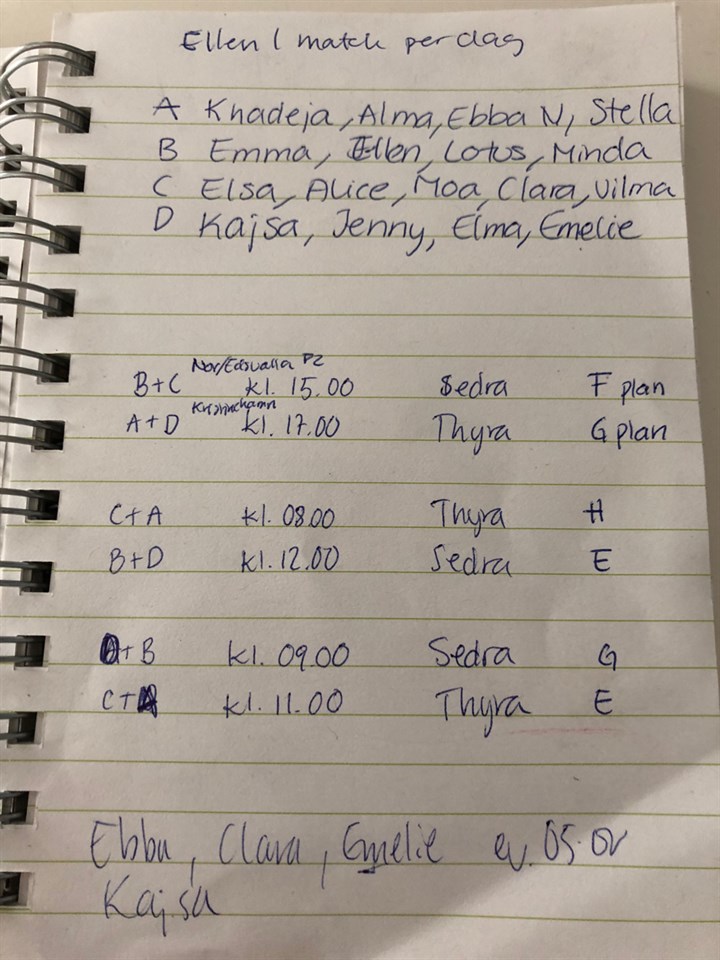 Ellen 1 match per dag
A Khadeja, Alma, Ebba N, Stella
B Emma, Ellen, Lotus, Minda
C Elsa, Alice, Moa, Clara, Vilma
D Kajsa, Jenny, Elma, Emelie
Nor/Edsvalla P2
B+C kl. 15.00 Sedra F plan
A+D kl. 17.00 Thyra G plan
C+A kl. 08.00 Thyra H
B+D kl. 12.00 Sedra E
+ B kl. 09.00 Sedra G
C+ kl. 11.00 Thyra E
Ebba, Clara, Emelie ev.
Kajsa